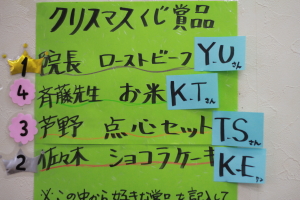 クリスマスくじ賞品
1 院長 ローストビーフ Y.Uさん
4 斉藤先生 お米 K.T.さん
3 芦野 点心セット T.S.さん
2 佐々木 ショコラケーキ K.E.さん
※この中から好きな賞品を記入して